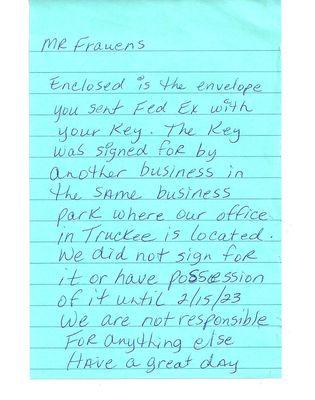 MR Frauens
Enclosed is the envelope
you sent Fed Ex with
your Key. The Key
was signed for by
another business in
the same business
park where our office
in Truckee is located.
We did not sign for
it or have possession
of it until 2/15/23
We are not responsible
FOR anything else
HAVE a great day